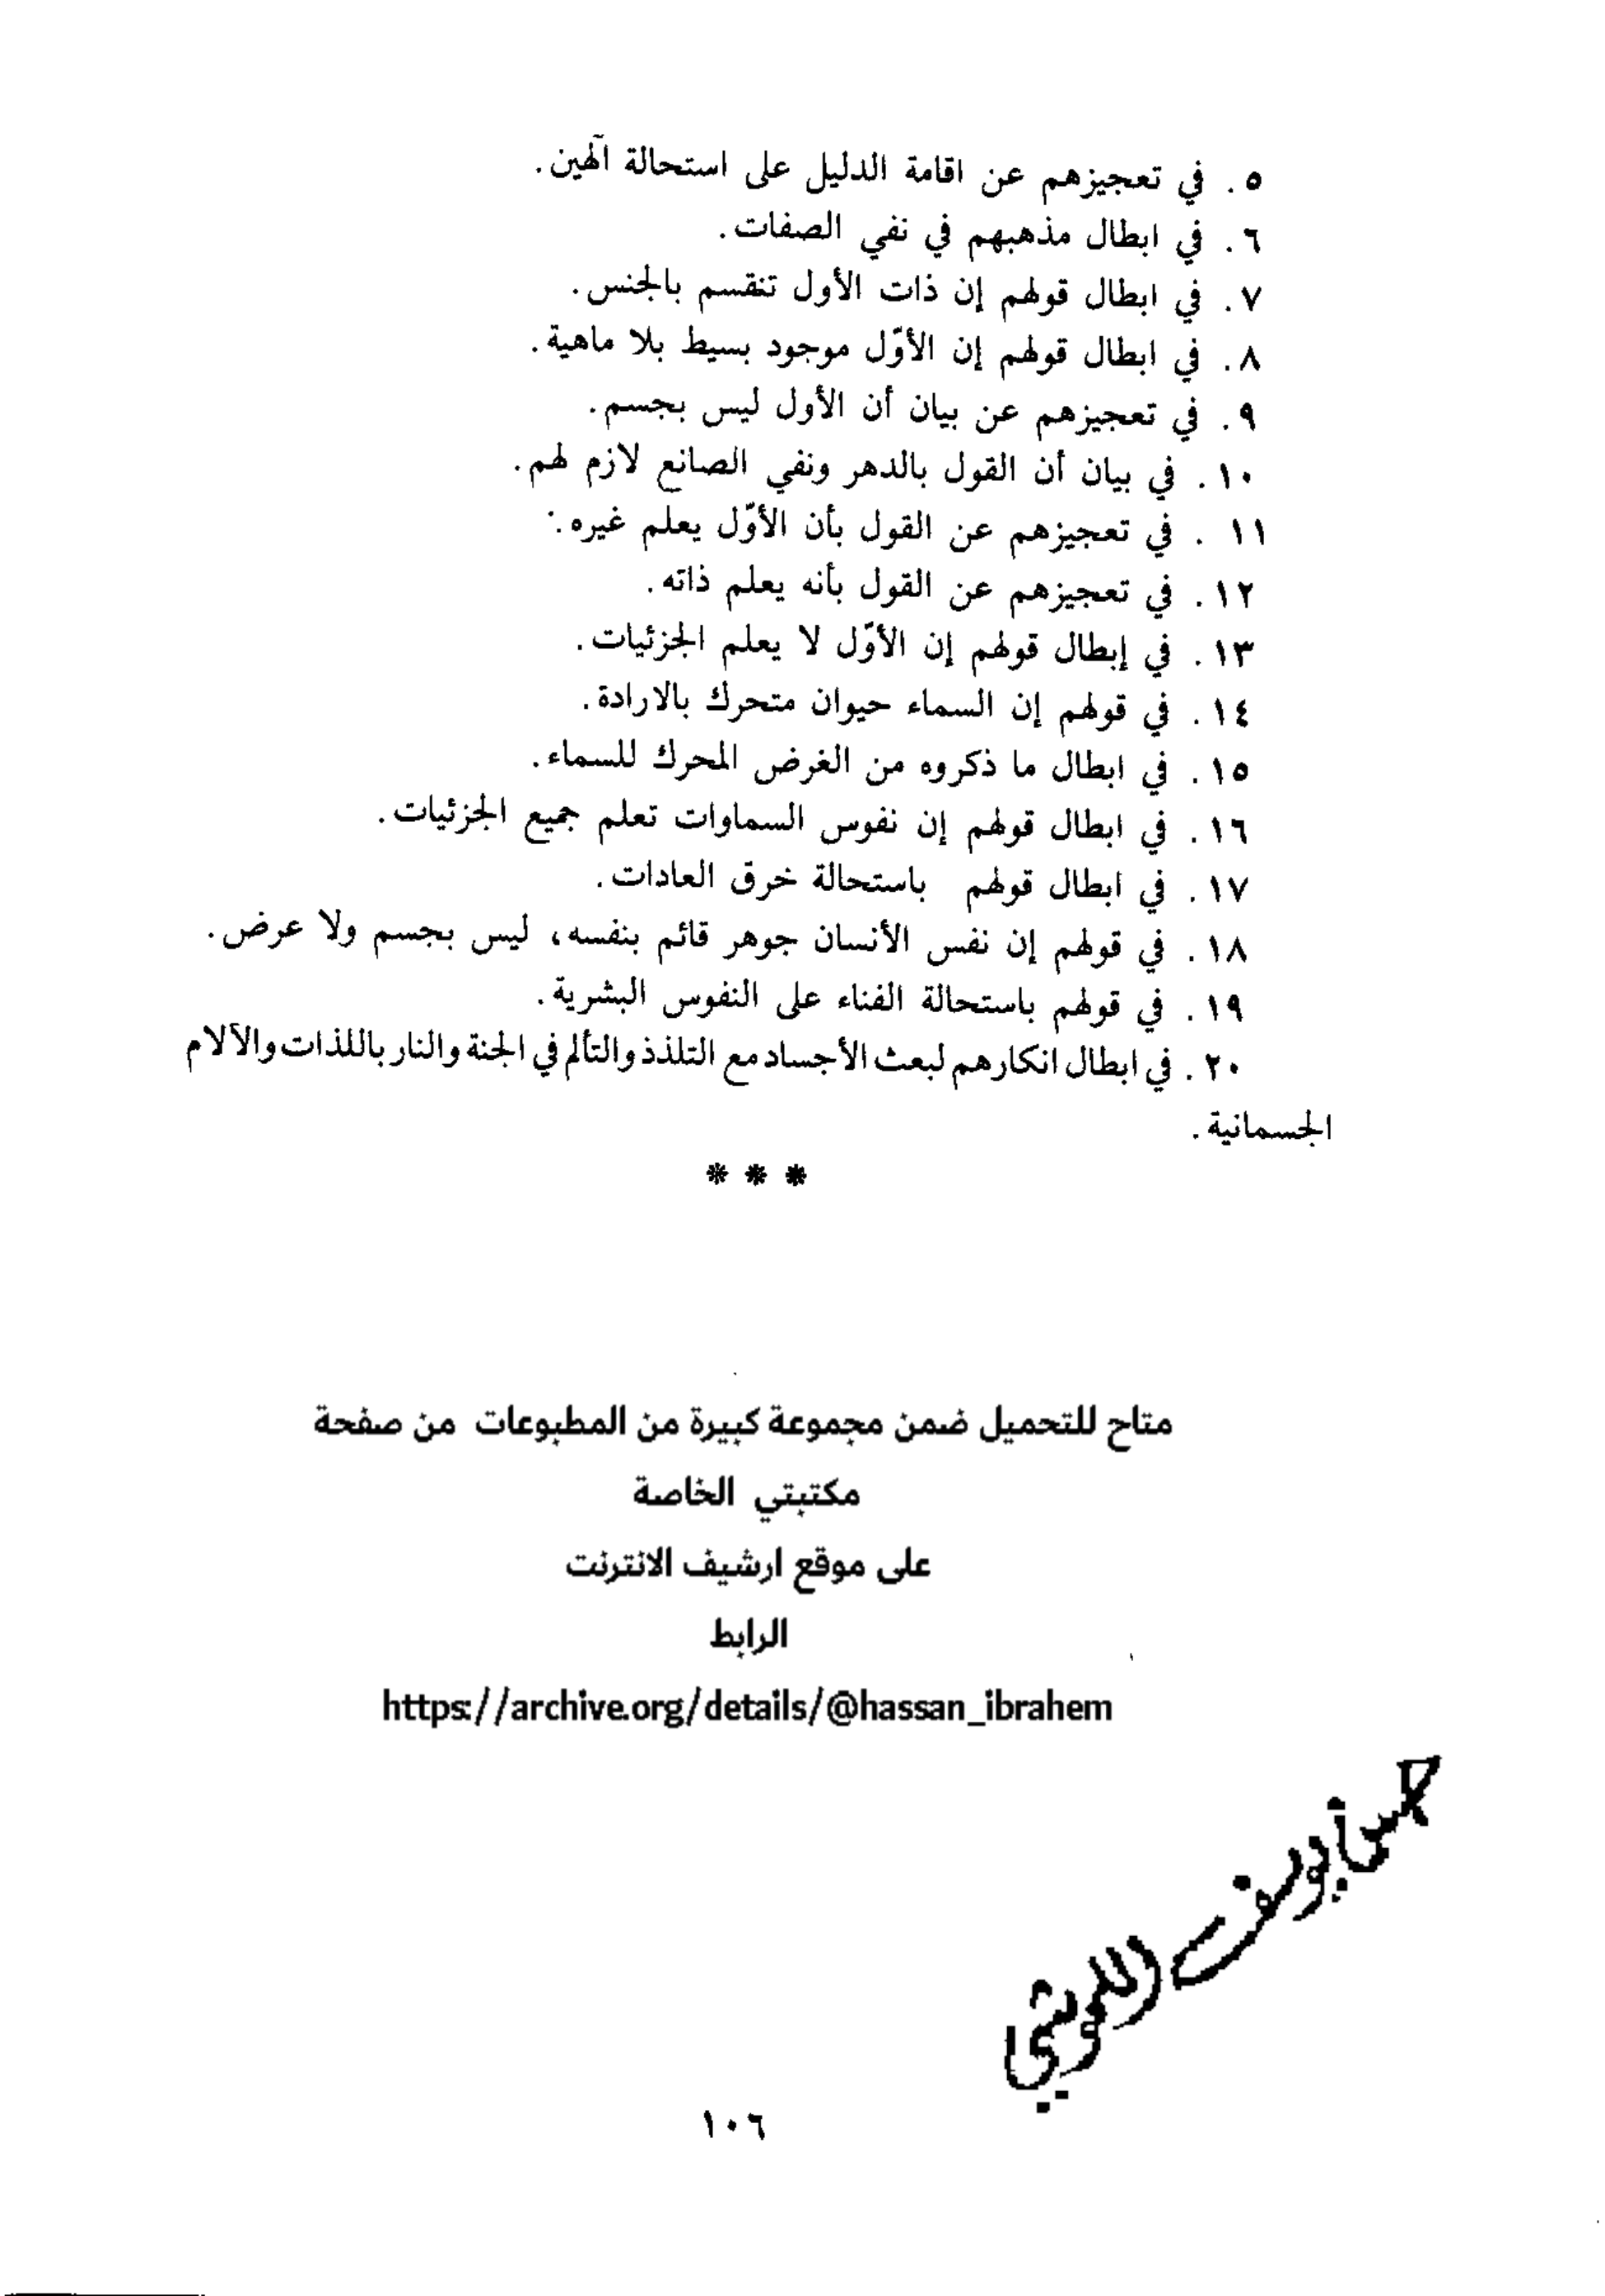 ٥ . في تعجيزهم عن اقامة الدليل على استحالة آلهين .
٦ . في ابطال مذهبهم في نفي الصفات .
٧ . في ابطال قولهم إن ذات الأول تنقسم بالجنس .
٨ . في ابطال قولهم إن الأوّل موجود بسيط بلا ماهية .
٩ . في تعجيزهم عن بيان أن الأول ليس بجسم .
١٠ . في بيان أن القول بالدهر ونفي الصانع لازم لهم .
١١ . في تعجيزهم عن القول بأن الأوّل يعلم غيره .
١٢ . في تعجيزهم عن القول بأنه يعلم ذاته .
١٣ . في إبطال قولهم إن الأوّل لا يعلم الجزئيات .
١٤ . في قولهم إن السماء حيوان متحرك بالارادة .
١٥ . في ابطال ما ذكروه من الغرض المحرك للسماء .
١٦ . في ابطال قولهم إن نفوس السماوات تعلم جميع الجزئيات .
١٧ . في ابطال قولهم باستحالة خرق العادات .
١٨ . في قولهم إن نفس الأنسان جوهر قائم بنفسه، ليس بجسم ولا عرض .
١٩ . في قولهم باستحالة الفناء على النفوس البشرية .
٢٠ . في ابطال انكارهم لبعث الأجساد مع التلذذ والتألم في الجنة والنار باللذات والآلام
الجسمانية .
* * *
متاح للتحميل ضمن مجموعة كبيرة من المطبوعات من صفحة
مكتبتي الخاصة
على موقع ارشيف الانترنت
الرابط
https://archive.org/details/@hassan_ibrahem
١٠٦